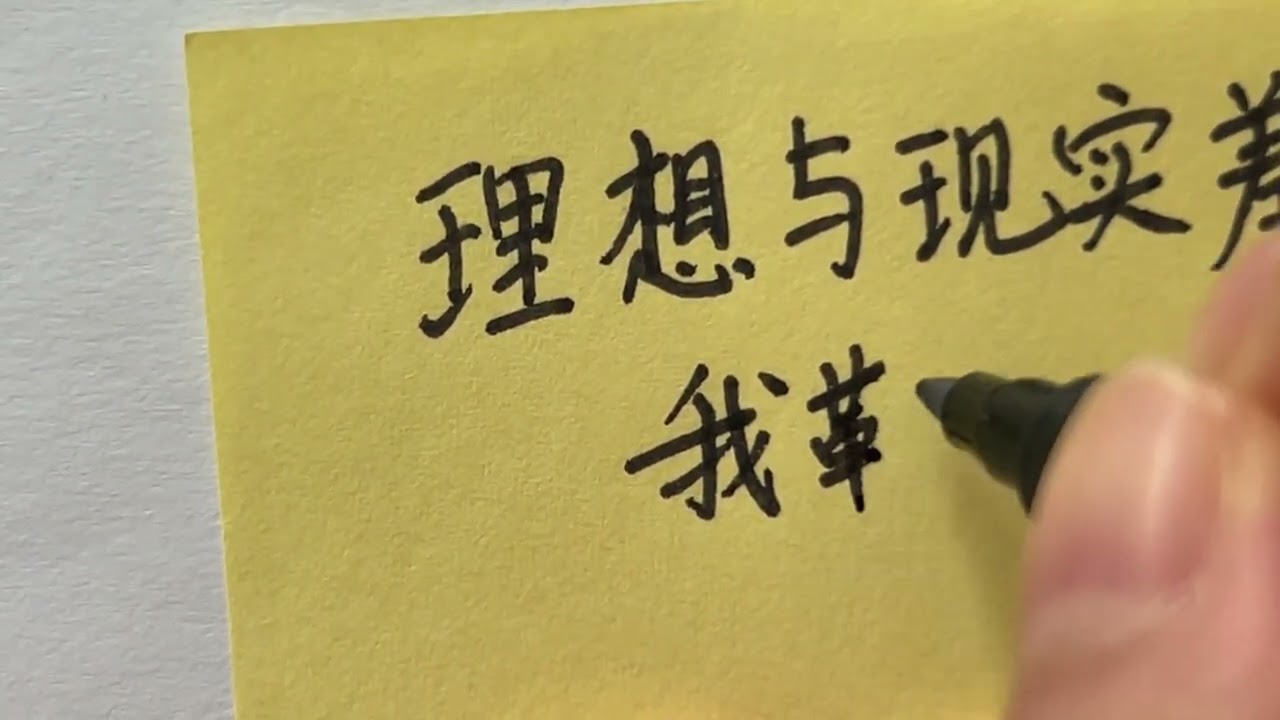 理想与现实差
我革